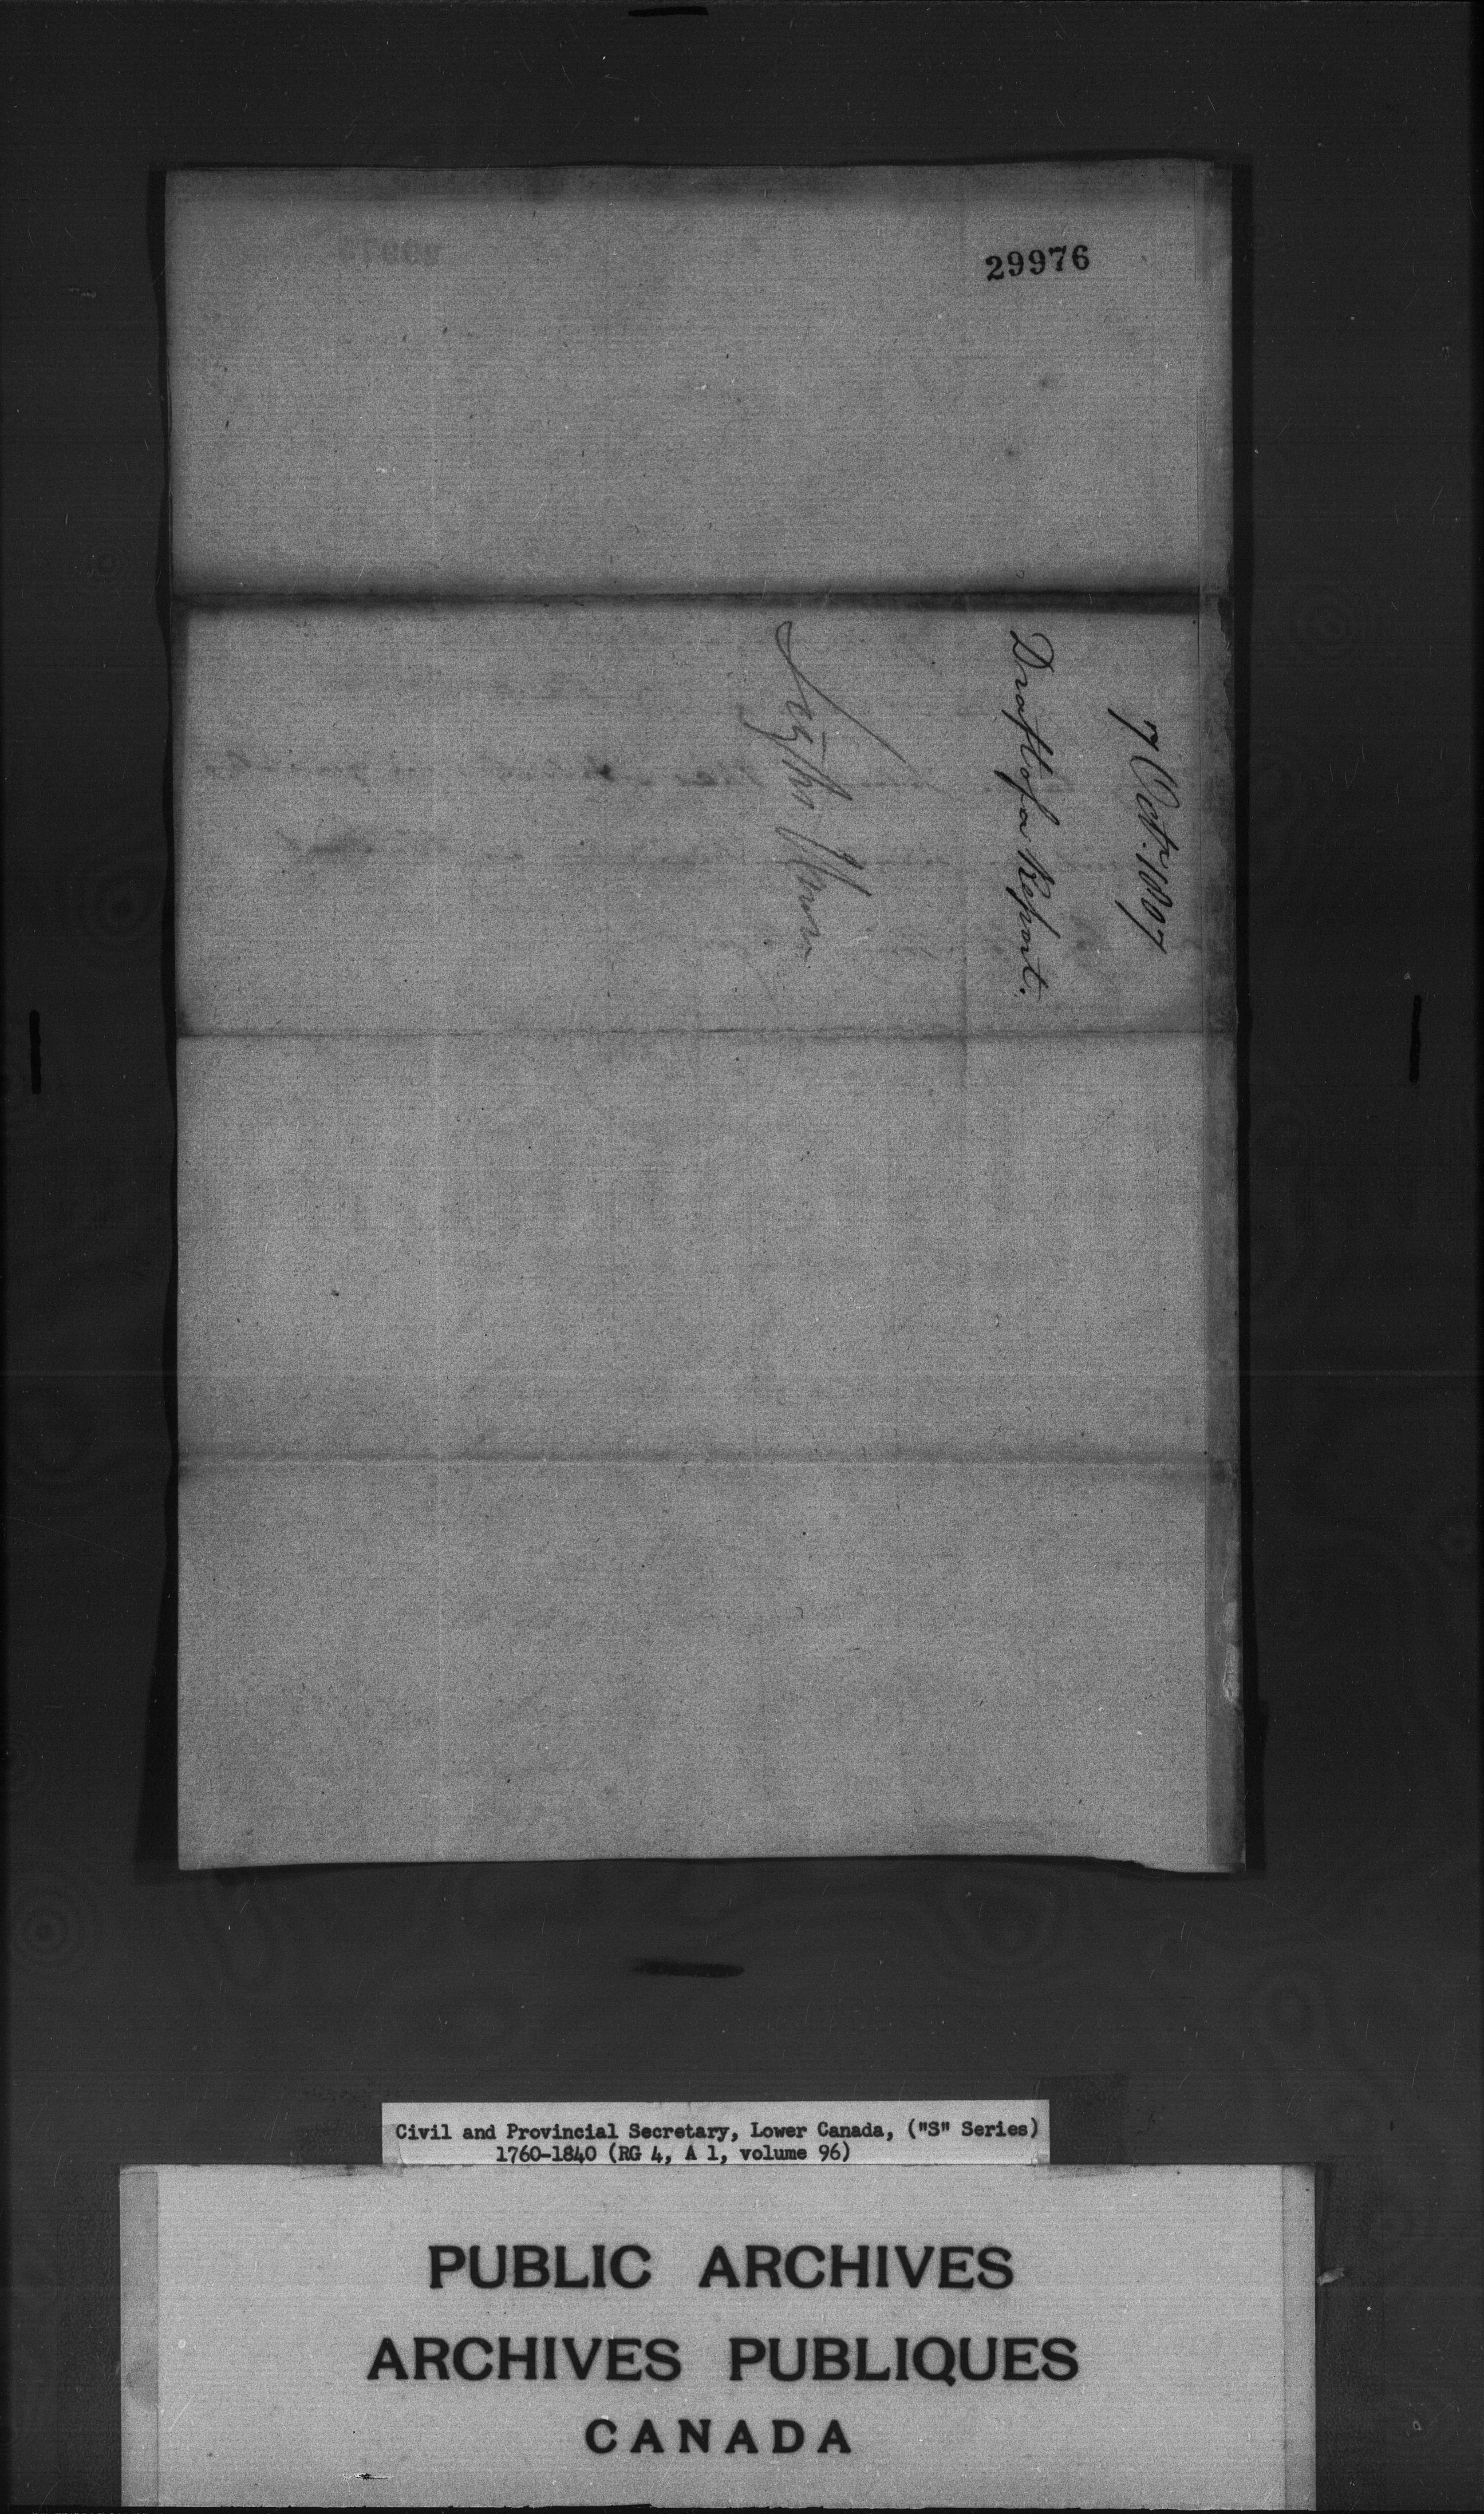 29976
7 Octr. 1807
Draft of a Report.
Civil and Provincial Secretary, Lower Canada, ("S" Series)
1760-1840 (RG 4, A 1, volume 96)
PUBLIC ARCHIVES
ARCHIVES PUBLIQUES
CANADA